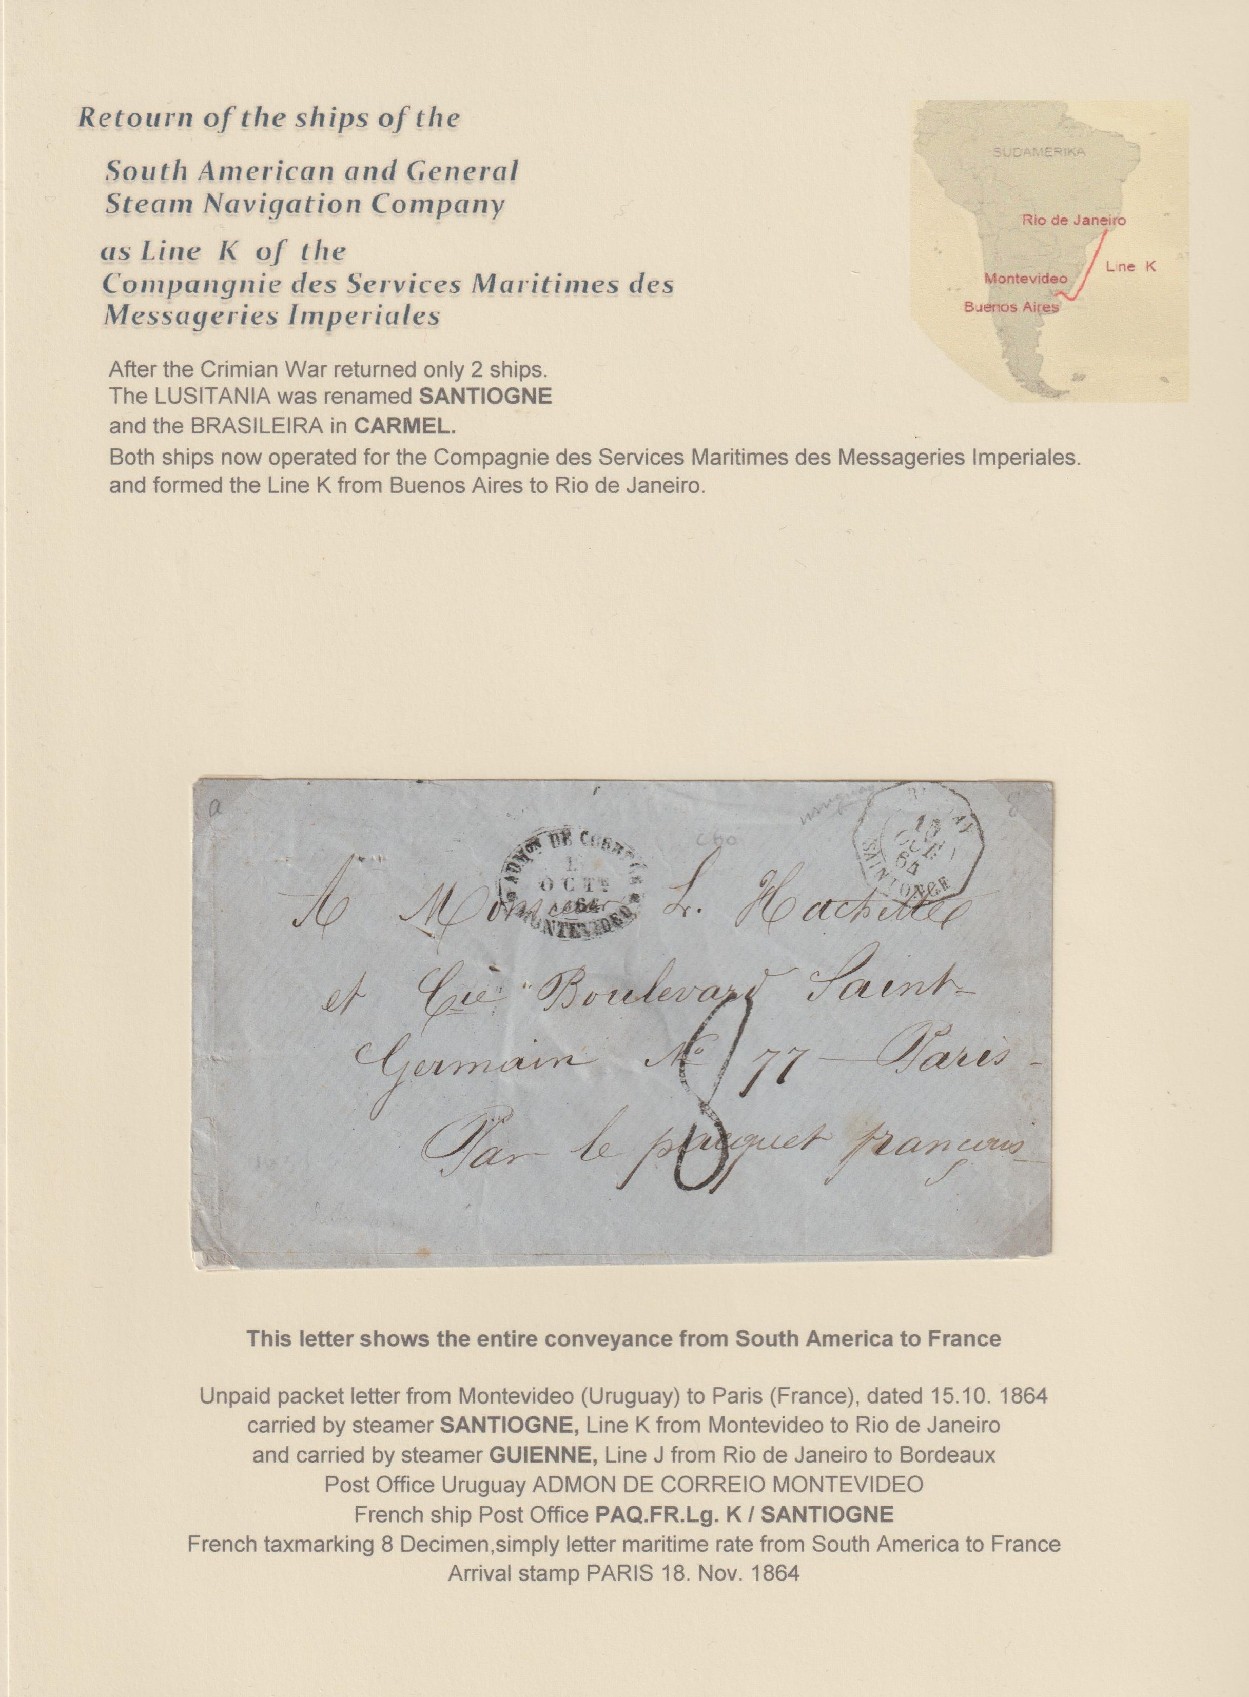 Retourn of the ships of the
South American and General
Steam Navigation Company
as Line K of the
Compangnie des Services Maritimes des
Messageries Imperiales
SÜDAMERIKA
Rio de Janeiro
Line K
Montevideo
Buenos Aires
After the Crimian War returned only 2 ships.
The LUSITANIA was renamed SANTIOGNE
and the BRASILEIRA in CARMEL.
Both ships now operated for the Compagnie des Services Maritimes des Messageries Imperiales.
and formed the Line K from Buenos Aires to Rio de Janeiro.
a
uruguay
8
ADMON DE CORREOS
OCTE
1864
MONTEVIDEO
15
OCT
64
SAINTONGE
A Monsieur L. Hachette
et Cie Boulevard Saint-
Germain No 77 - Paris -
8
Par le pacquet français
This letter shows the entire conveyance from South America to France
Unpaid packet letter from Montevideo (Uruguay) to Paris (France), dated 15.10. 1864
carried by steamer SANTIOGNE, Line K from Montevideo to Rio de Janeiro
and carried by steamer GUIENNE, Line J from Rio de Janeiro to Bordeaux
Post Office Uruguay ADMON DE CORREIO MONTEVIDEO
French ship Post Office PAQ.FR.Lg. K / SANTIOGNE
French taxmarking 8 Decimen,simply letter maritime rate from South America to France
Arrival stamp PARIS 18. Nov. 1864